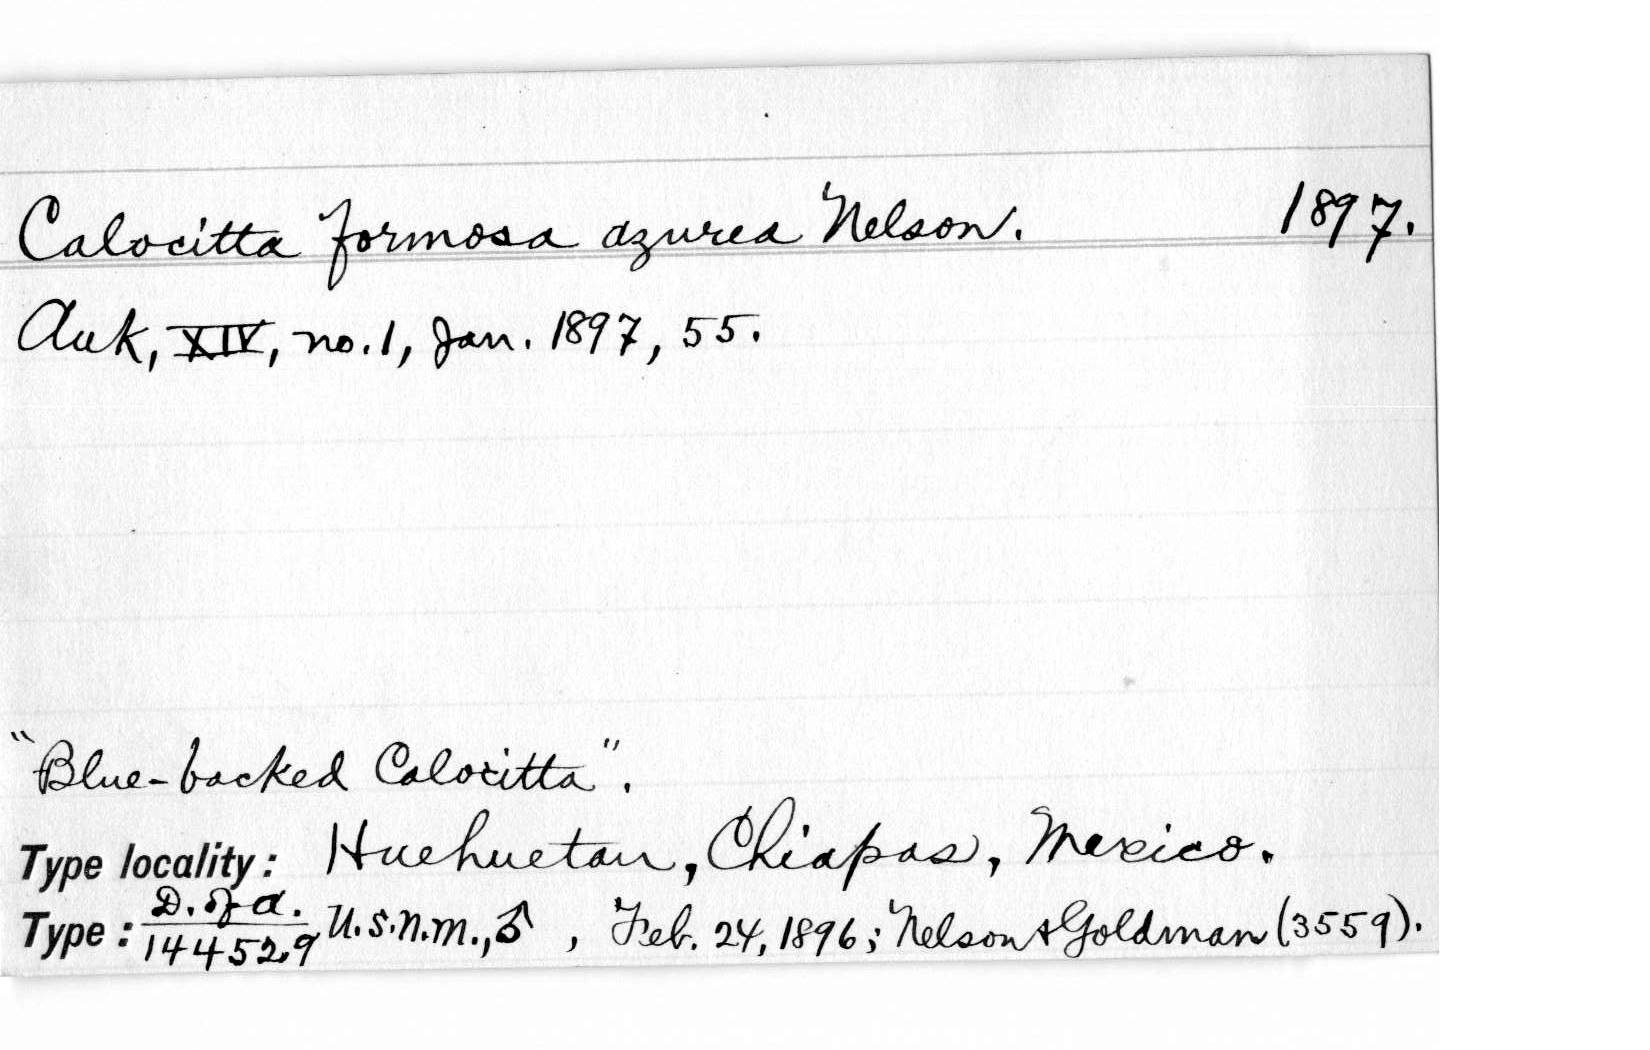 Calocitta formosa azurea Nelson. 1897.
Auk, XIV, no. 1, Jan. 1897, 55.
"Blue-backed Calocitta".
Type locality: Huehuetan, Chiapas, Mexico.
Type: D. of A. / 144529 U.S.N.M., ♂, Feb. 24, 1896; Nelson & Goldman (3559).